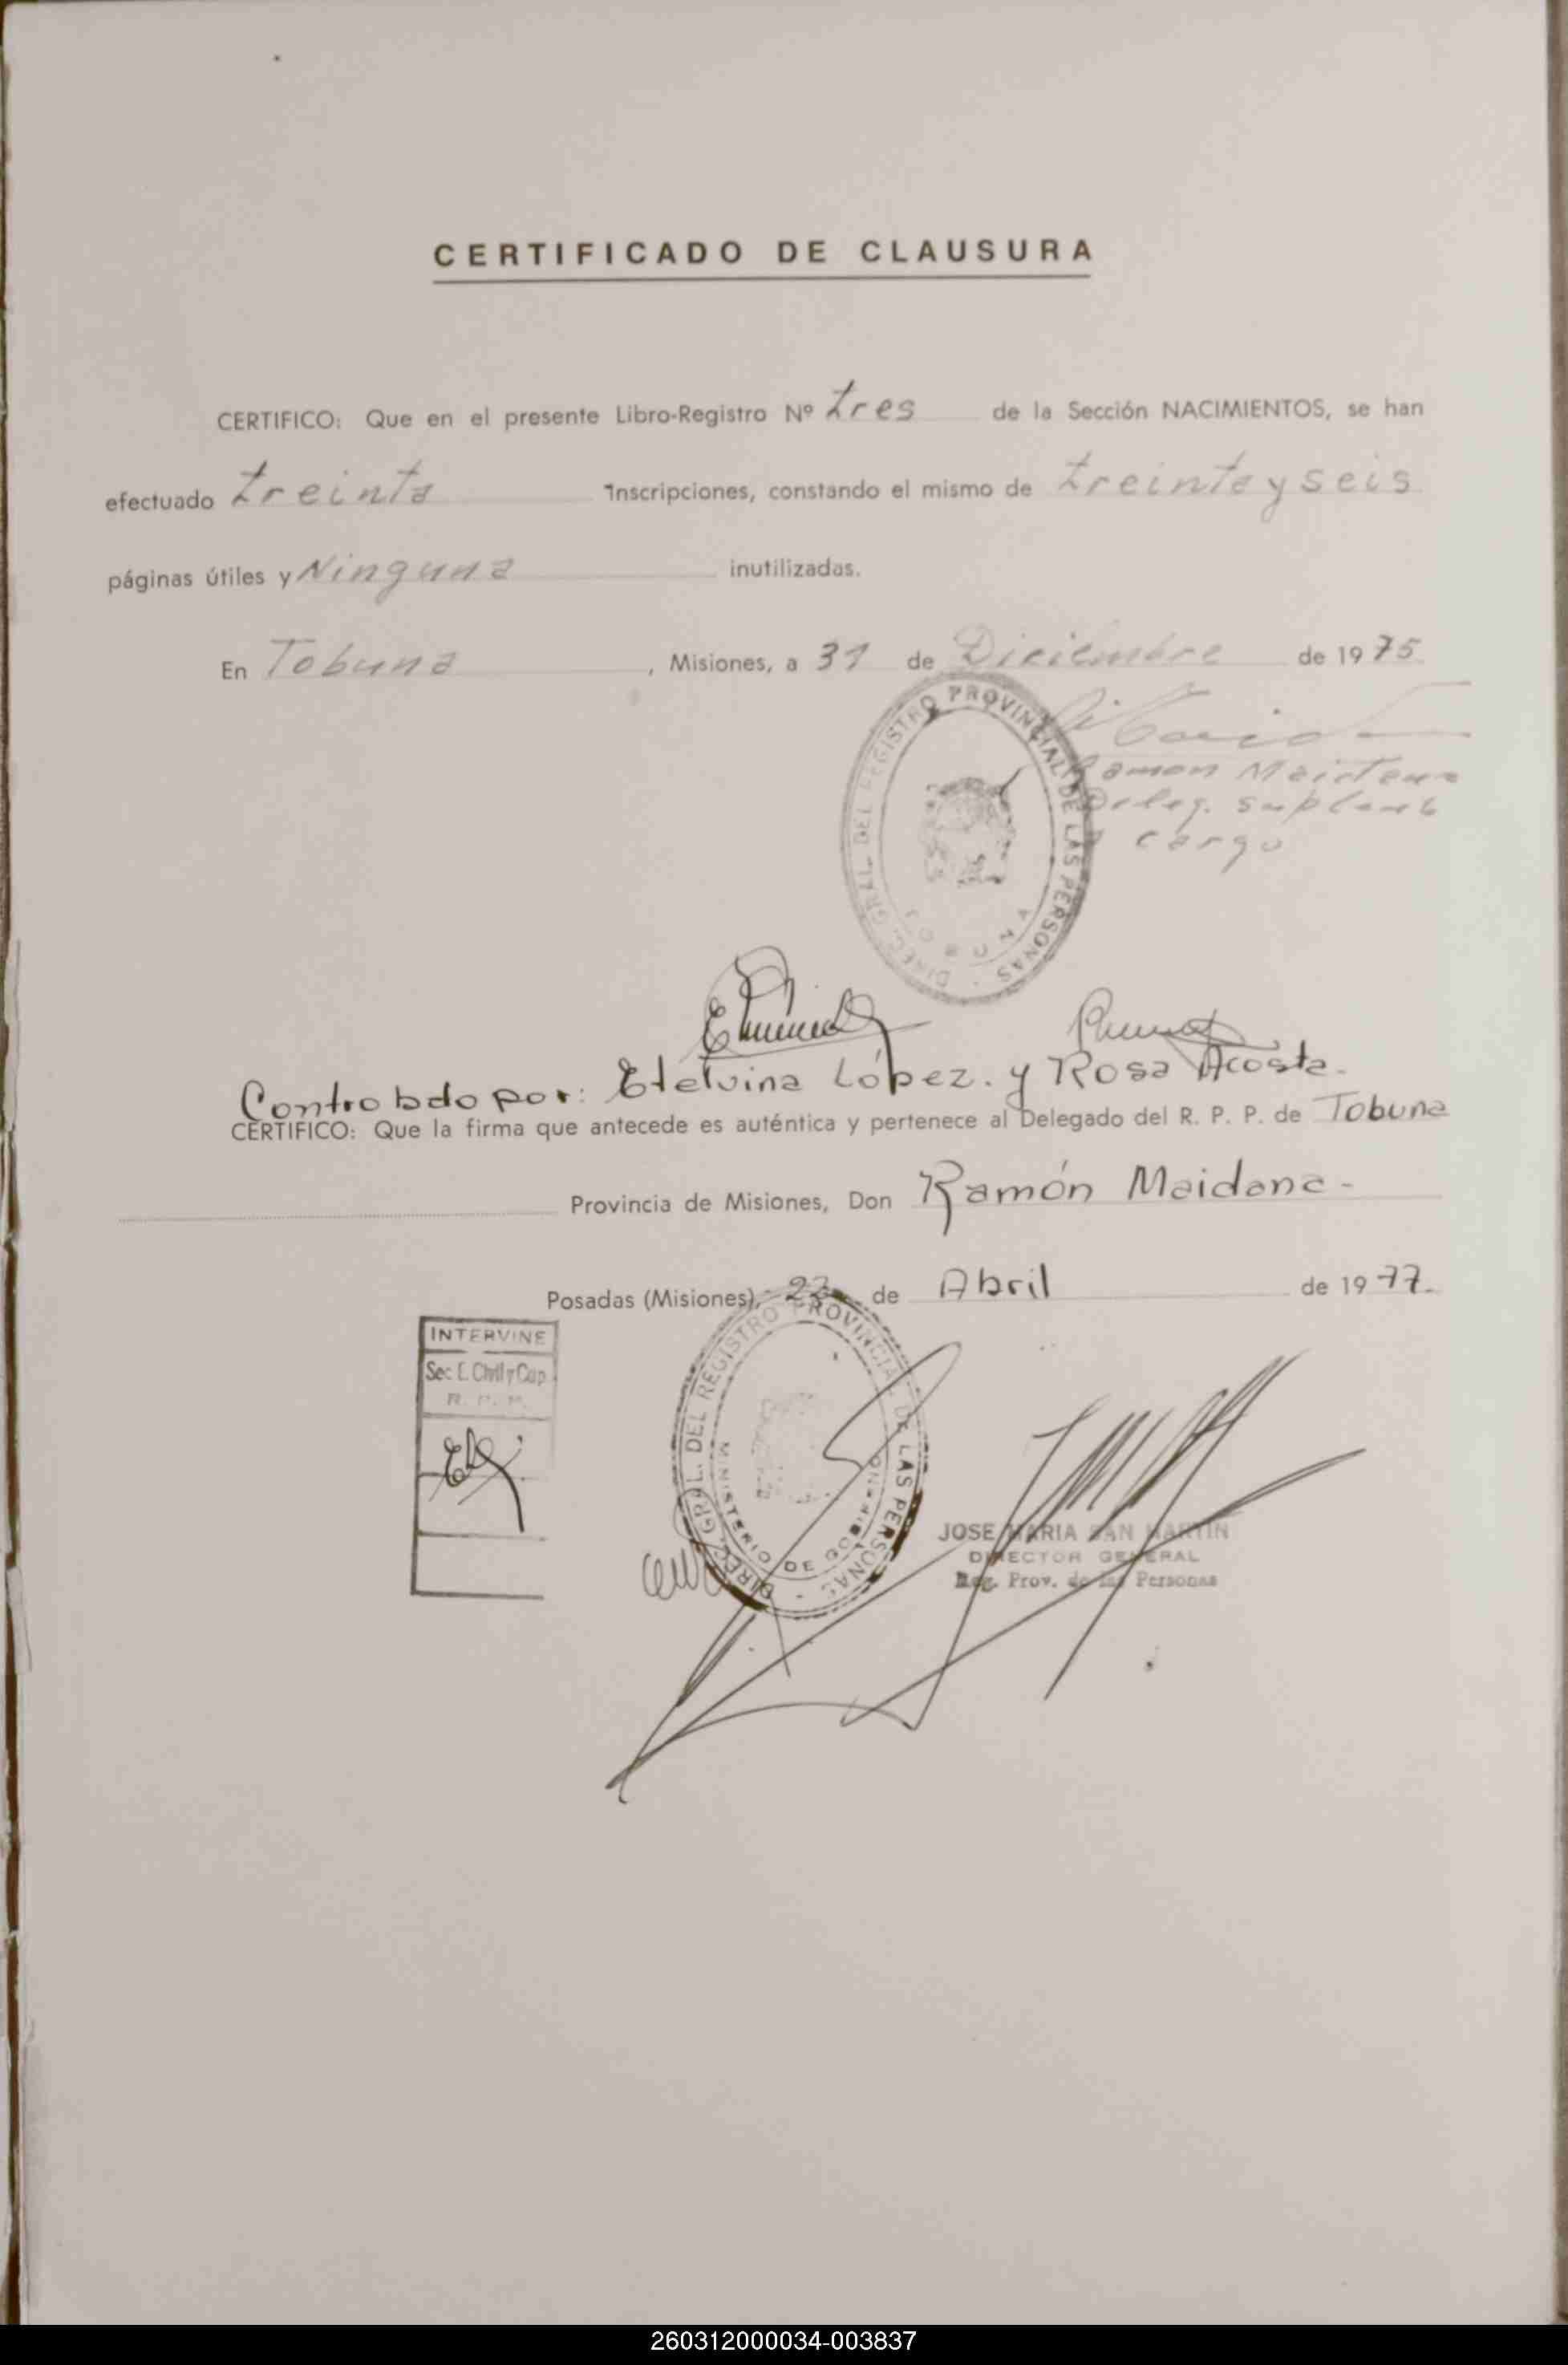 CERTIFICADO DE CLAUSURA
CERTIFICO: Que en el presente Libro-Registro Nº tres de la Sección NACIMIENTOS, se han
efectuado treinta Inscripciones, constando el mismo de treinta y seis
páginas útiles y Ninguna inutilizadas.
En Tobuna, Misiones, a 31 de Diciembre de 1975
Ramon Maidana
Deleg. suplente
a cargo
DIREC. GRAL. DEL REGISTRO PROVINCIAL DE LAS PERSONAS
Controlado por: Etelvina López. y Rosa Acosta.
CERTIFICO: Que la firma que antecede es auténtica y pertenece al Delegado del R. P. P. de Tobuna
Provincia de Misiones, Don Ramón Maidana -
Posadas (Misiones), 27 de Abril de 1977.
INTERVINE
Sec E. Civil y Cap
DIREC. GRAL. DEL REGISTRO PROVINCIAL DE LAS PERSONAS
MINISTERIO DE GOBIERNO
JOSE MARIA SAN MARTIN
DIRECTOR GENERAL
Reg. Prov. de las Personas
260312000034-003837